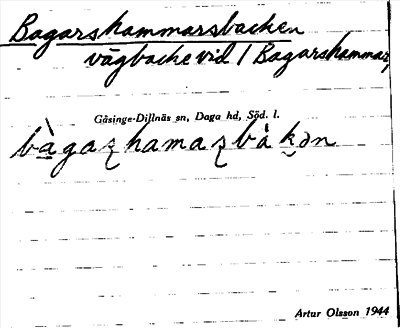 Bagarshammarsbacken
vägbacke vid / Bagarshammar,
Gåsinge-Dillnäs sn, Daga hd, Söd. l.
bàgaʂhamaʂbàkən
Artur Olsson 1944